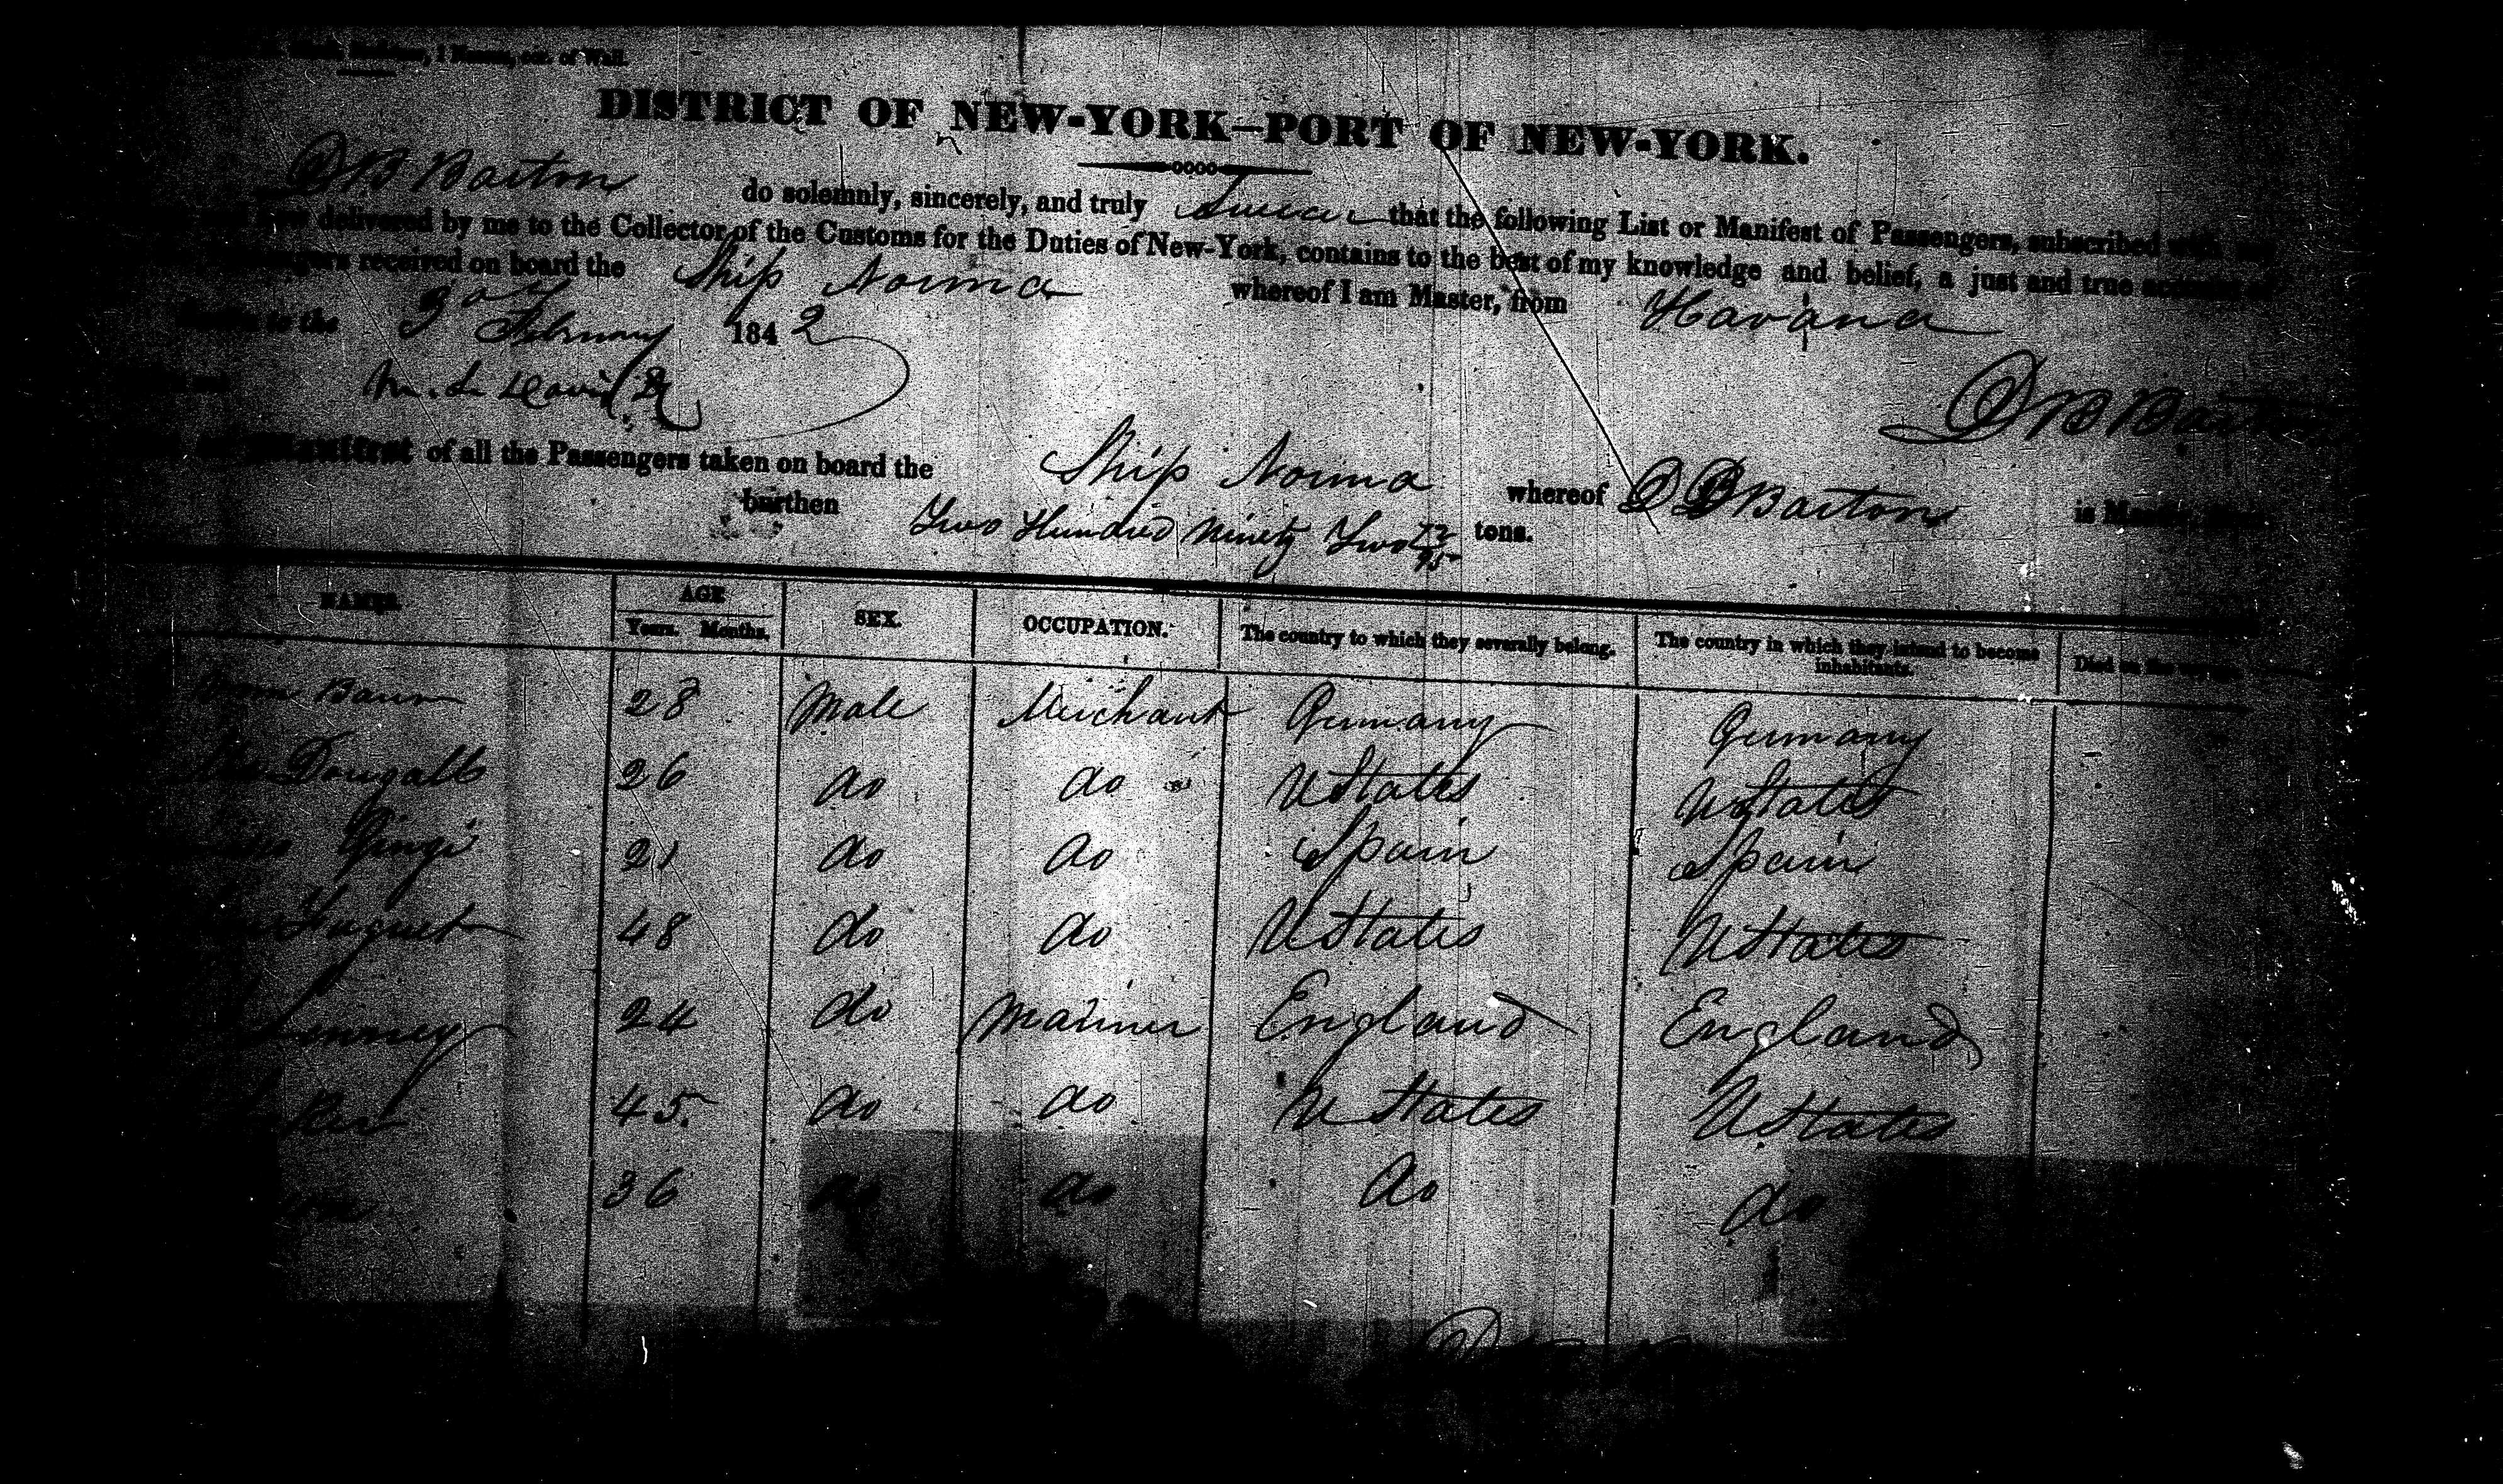 1 Nassau, cor. of Wall.
DISTRICT OF NEW-YORK—PORT OF NEW-YORK.
D B Barton do solemnly, sincerely, and truly Swear that the following List or Manifest of Passengers, subscribed with my
now delivered by me to the Collector of the Customs for the Duties of New-York, contains to the best of my knowledge and belief, a just and true account of
received on board the Ship Norma whereof I am Master, from Havana
to the 3 day February 1842
D B Barton
of all the Passengers taken on board the Ship Norma whereof D B Barton is Master, from
burthen Two Hundred Ninety Two 72/95 tons.
NAMES. AGE SEX. OCCUPATION. The country to which they severally belong. The country in which they intend to become inhabitants. Died on the voyage.
Years. Months.
Baur 28 Male Merchant Germany Germany
Dougall 26 do do UStates UStates
21 do do Spain Spain
Fuguet 48 do do UStates UStates
24 do Mariner England England
45 do do UStates UStates
36 do do do do